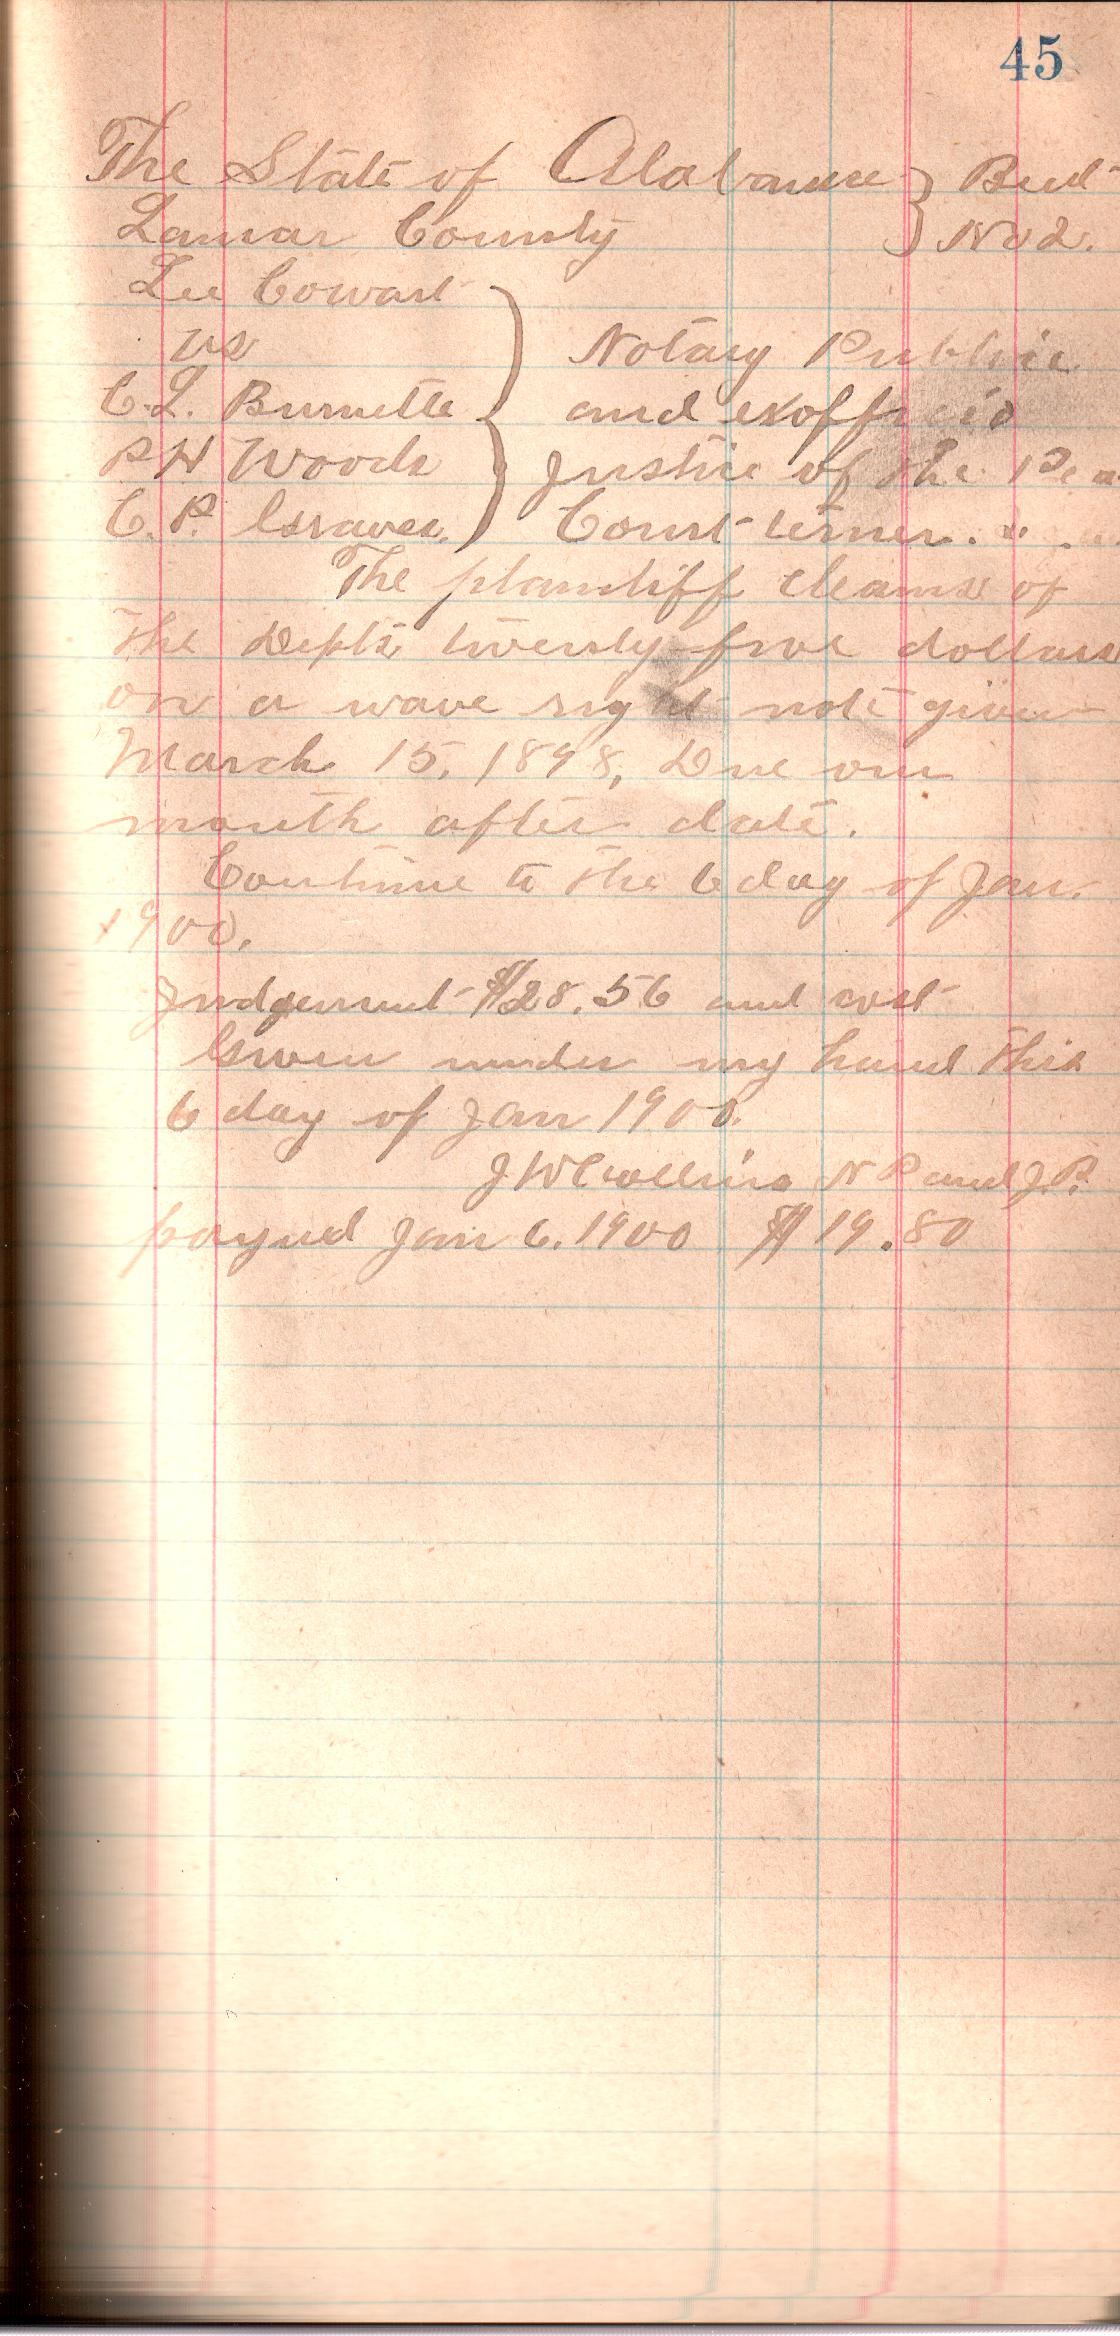 45
The State of Alabama } Beat
Lamar County } No 2.
Lee Cowart
vs Notary Public
C. L. Burnette and exofficio
P H Woods Justice of the Pea
C. P. Graves. Court terner.
The plantiff cleams of
the Defts twenty five dollars
on a wave right note given
March 15, 1898, Due one
month after date.
Continue to the 6 day of Jan.
1900.
Judgement $28.56 and cost
Given under my hand this
6 day of Jan 1900.
J W Collins N P and J. P.
payed Jan 6. 1900 $19.80